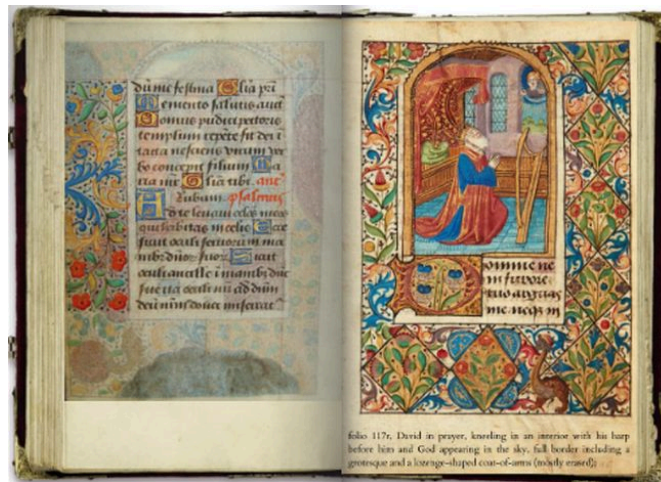 dū me festina Glia pri
Memento salutis auct
Domus pudici pectoris
templum repēte fit dei ī
tacta nesciens virum ver
bo concepit filium Ma
ria mr Glia tibi. ant
psalmus
Ad te levavi oculos meos
qui habitas in celis Ecce
sicut oculi servorum in ma
nibz dnor suor Sicut
oculi ancille ī manibz dne
sue ita oculi nri ad dnm
deū nrm donec
Domine ne
in furore
tuo arguas
me neqz in
folio 117r, David in prayer, kneeling in an interior with his harp
before him and God appearing in the sky, full border including a
grotesque and a lozenge-shaped coat-of-arms (mostly erased);